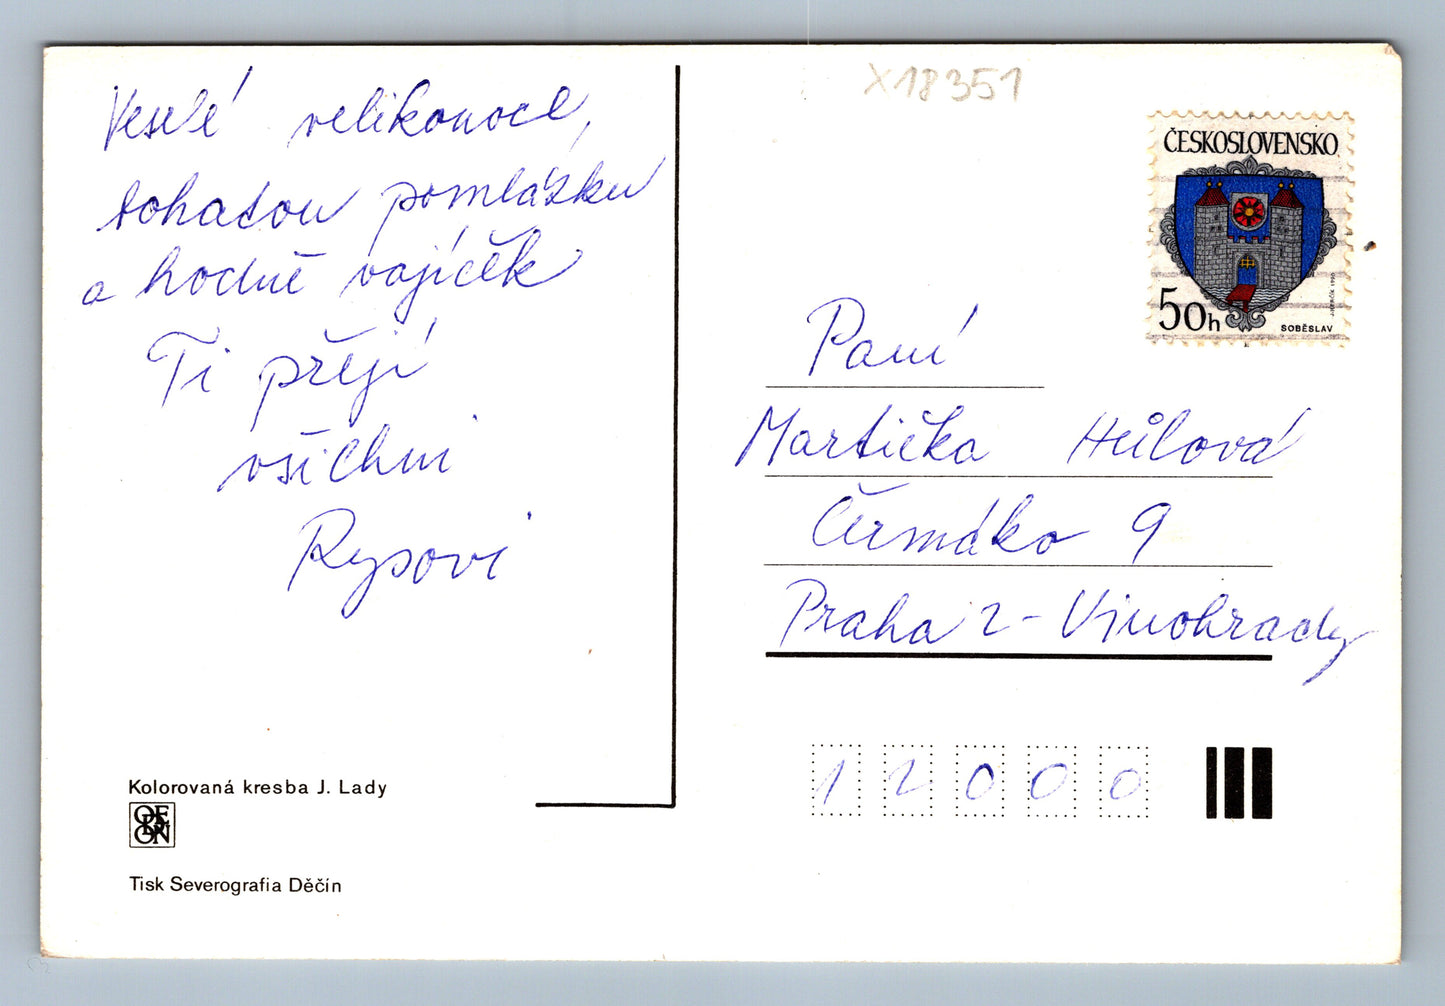 Veselé velikonoce,
bohatou pomlázku
a hodně vajíček
Ti přejí
všichni
Rysovi
Kolorovaná kresba J. Lady
ODEON
Tisk Severografia Děčín
X18351
ČESKOSLOVENSKO
50h
SOBĚSLAV
Paní
Martička Hůlová
Čermáko 9
Praha 2 - Vinohrady
12000